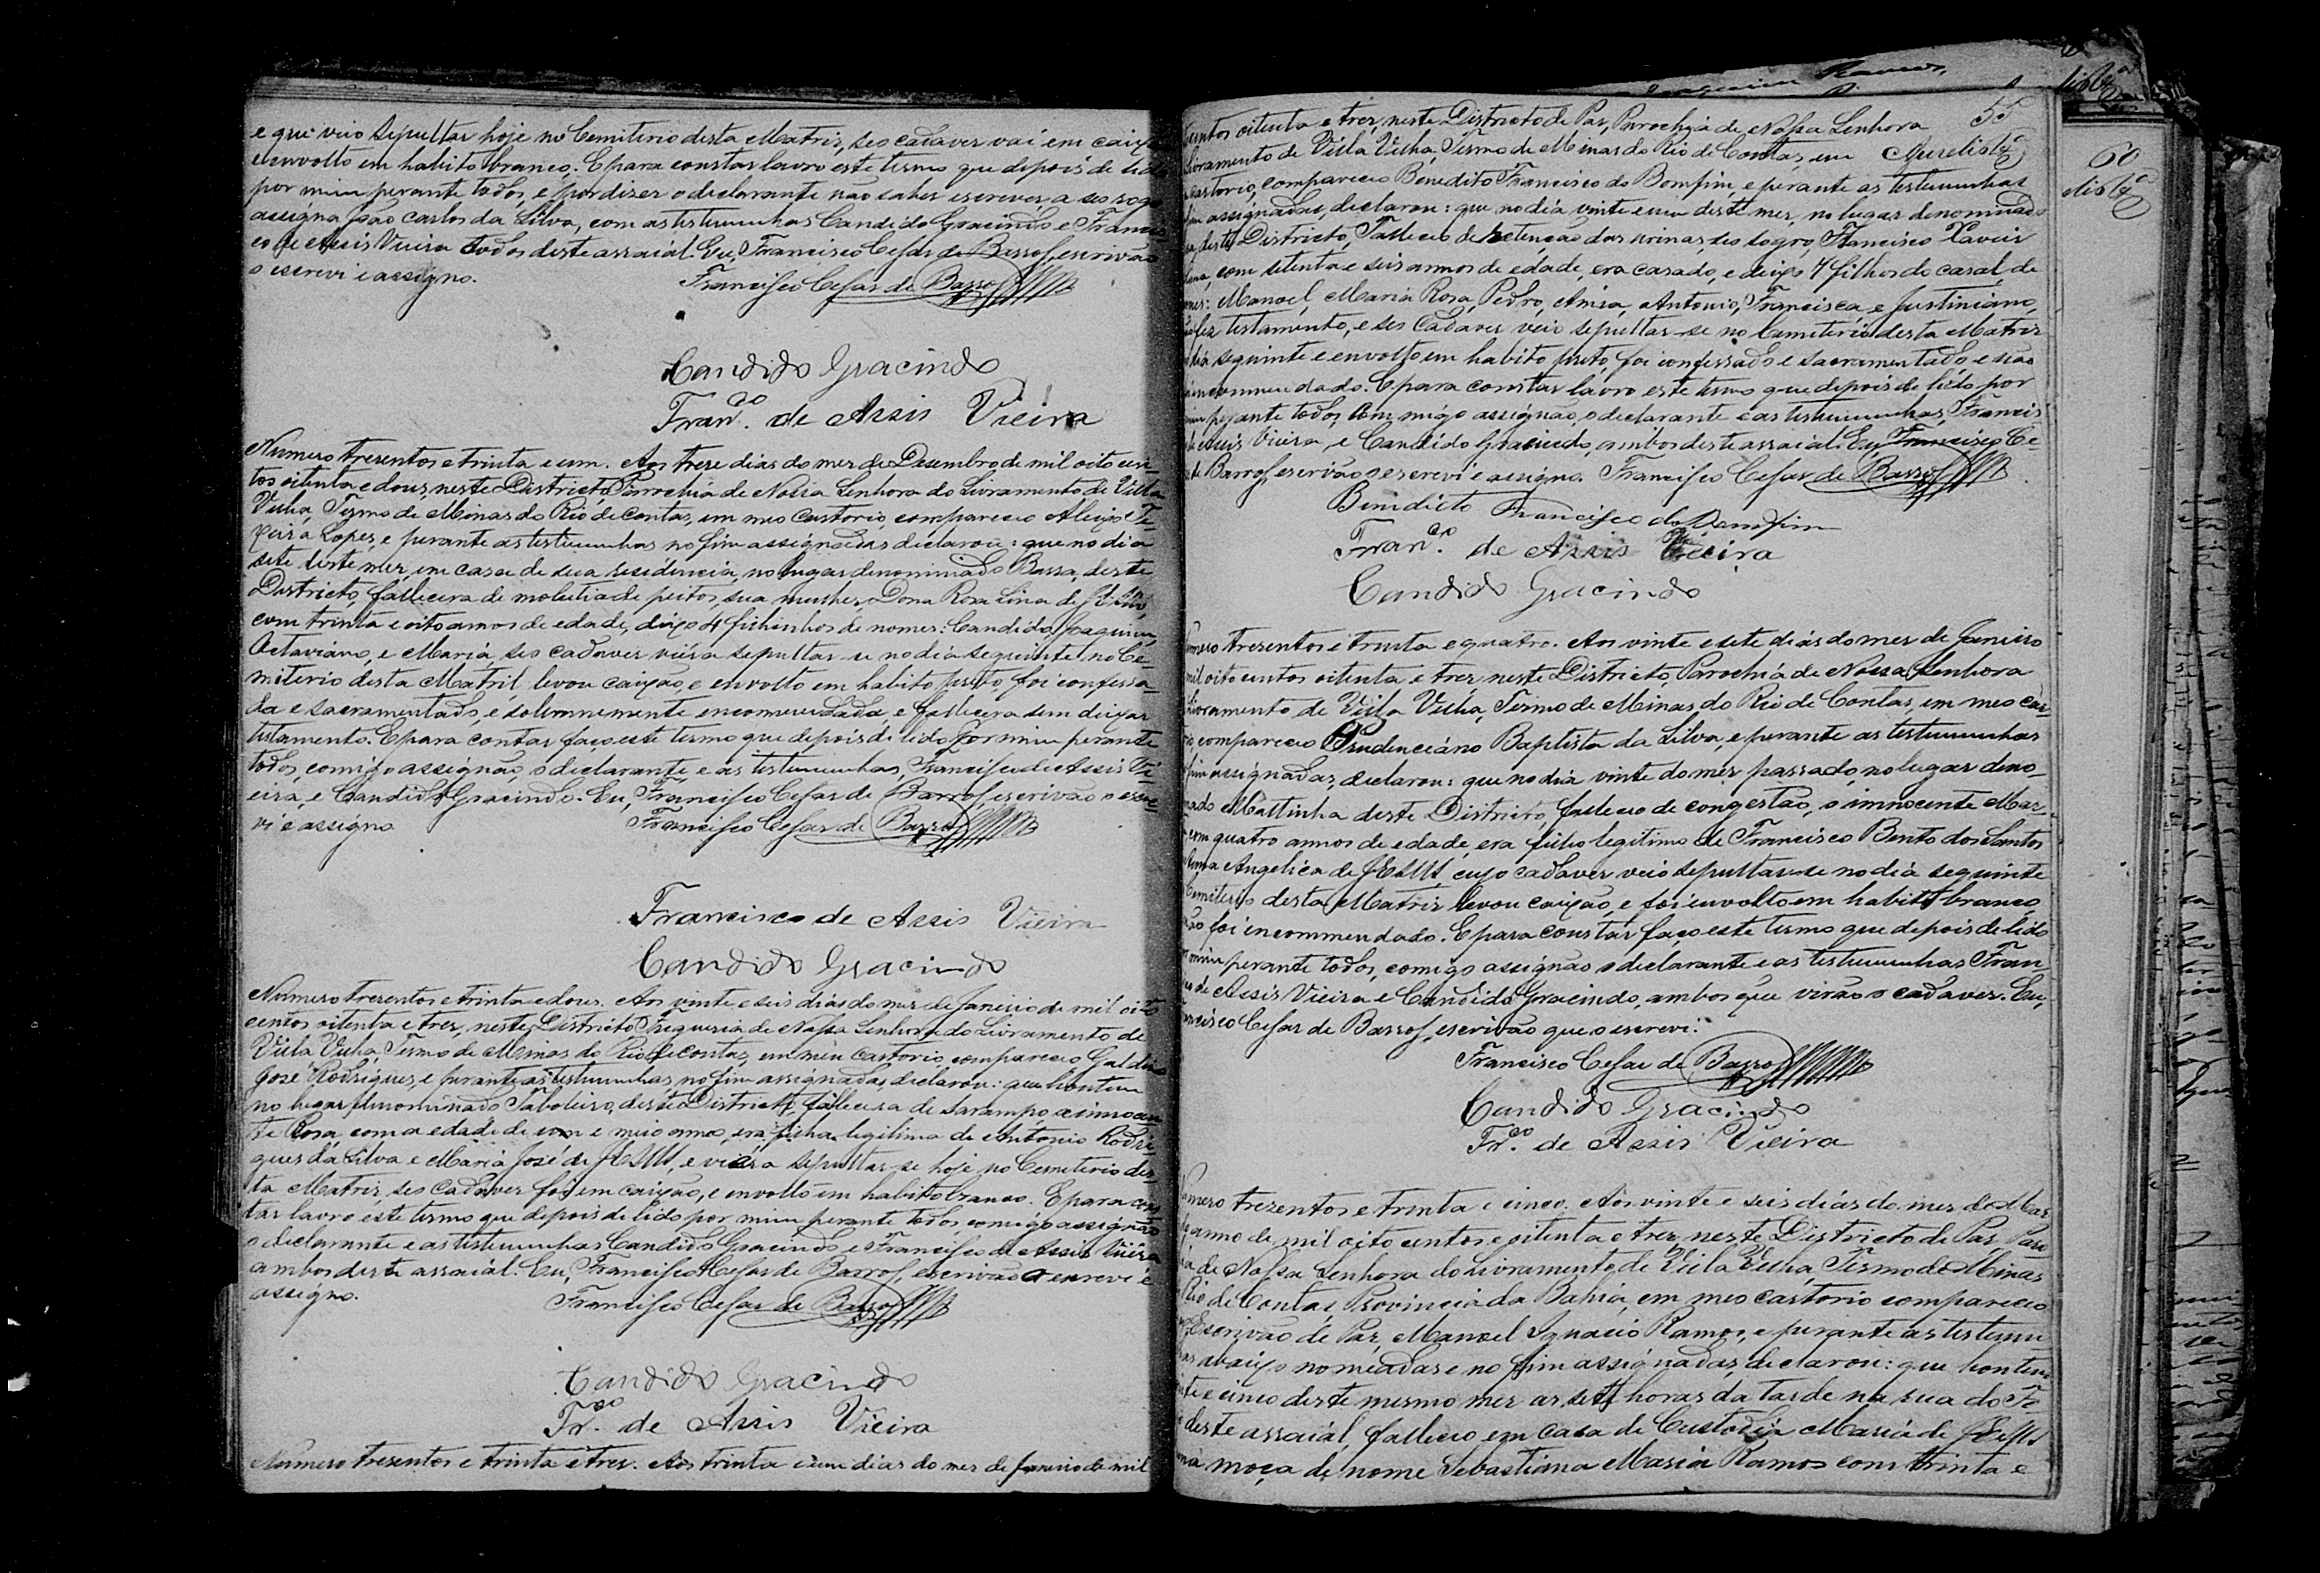 e qui veio sepultar hoje no Cemiterio desta Matriz, seo cadaver vai em caixão
e envolto em habito branco. E para constar lavro este termo que depois de lido
por mim perante todos, e por dizer o declarante não saber escrever, a seo rogo
assigna João Carlos da Silva, com as testemunhas Candido Gracindo e Francis
co de Assis Vieira todos deste arraial. Eu, Francisco Cesar de Barros, escrivão
o escrevi e assigno. Francisco Cesar de Barros
Candido Gracindo
Fran.co de Assis Vieira
Numero tresentos e trinta e um. Aos trese dias do mes de Desembro de mil oito cen-
tos oitenta e dous, neste Districto, Parrochia de Nossa Senhora do Livramento de Villa
Velha, Termo de Minas do Rio de Contas, em meo Cartorio, compareceo Aleixo Te-
xeira Lopes, e perante as testemunhas no fim assignadas declarou: que no dia
sete deste mes, em casa de sua residencia, no lugar denominado Barra, deste
Districto, fallecera de molestia de peitos, sua mulher, Dona Rosa Lina de
com trinta e oito annos de edade, deixo 4 filhinhos de nomes: Candido, Joaquim,
Octaviano, e Maria, seo cadaver viera sepultar-se no dia seguinte no Ce-
miterio desta Matriz, levou caixão, e envolto em habito preto foi confessa-
da e sacramentado, e solemnemente encommendada, e fallecera sem deixar
testamento. E para contar faço este termo que depois de lido por mim perante
todos, comigo assignão o declarante e as testemunhas, Francisco de Assis Vi
eira, e Candido Gracindo. Eu, Francisco Cesar de Barros, escrivão o escre-
vi e assigno. Francisco Cesar de Barros
Francisco de Assis Vieira
Candido Gracindo
Numero tresentos e trinta e dous. Aos vinte e seis dias do mes de Janeiro de mil oito
centos oitenta e tres, neste Districto Freguesia de Nossa Senhora do Livramento de
Villa Velha, Termo de Minas do Rio de Contas, em meu Cartorio, compareceo Galdino
José Rodrigues, e perante as testemunhas no fim assignadas declarou: que hontem
no lugar denominado Taboleiro, deste Districto, fallecera de Sarampo, a innocen
te Rosa, com a edade de um e meio anno, era filha legitima de Antonio Rodri
gues da Silva e Maria José de Jesus, e viera sepultar-se hoje no Cemiterio des
ta Matriz, seo Cadaver foi em caixão, e envolto em habito branco. E para cons
tar lavro este termo que depois de lido por mim perante todos, comigo assignão
o declarante e as testemunhas Candido Gracindo e Francisco de Assis Vieira
ambos deste arraial. Eu, Francisco Cesar de Barros, escrivão o escrevi e
assigno. Francisco Cesar de Barros
Candido Gracindo
Fr.co de Assis Vieira
Numero tresentos e trinta e tres. Aos trinta e um dias do mes de Janeiro de mil
55
centos oitenta e tres, neste Districto de Paz, Parochia de Nossa Senhora
Livramento de Villa Velha, Termo de Minas do Rio de Contas, em
Cartorio, compareceo Benedito Francisco do Bomfim, e perante as testemunhas
assignadas, declarou: que no dia vinte e um deste mes, no lugar denominado
deste Districto, Falleceo de retenção das urinas, seo sogro, Francisco Xavier
com setenta e seis annos de edade, era casado, e deixo 7 filhos do casal, de
nomes: Manoel, Maria Rosa, Pedro, Anna, Antonio, Francisca, e Justiniano,
fez testamento, e seo Cadaver veio sepultar-se no Cemiterio desta Matriz
dia seguinte e envolto em habito preto, foi confessado e sacramentado e não
encommendado. E para constar lavro este termo que depois de lido por
mim perante todos, commigo assignão, o declarante e as testemunhas, Francis
de Assis Vieira, e Candido Gracindo, ambos deste arraial. Eu, Francisco Ce-
de Barros, escrivão o escrevi e assigno. Francisco Cesar de Barros
Benedicto Francisco do Bomfim
Fran.co de Assis Vieira
Candido Gracindo
Numero tresentos e trinta e quatro. Aos vinte e sete dias do mes de Janeiro
mil oito centos oitenta e tres, neste Districto, Parochia de Nossa Senhora
Livramento de Villa Velha, Termo de Minas do Rio de Contas, em meo Car-
compareceo Prudenciano Baptista da Silva, e perante as testemunhas
fim assignadas, declarou: que no dia vinte do mes passado, no lugar deno-
nado Mattinha deste Districto, falleceo de congestão, o innocente Mar-
com quatro annos de edade, era filho legitimo de Francisco Bento dos Santos
Angelica de Jesus, cujo cadaver veio sepultar-se no dia seguinte
Cemiterio desta Matriz levou caixão, e foi envolto em habito branco,
não foi incommendado. E para constar faço este termo que depois de lido
mim perante todos, comigo assignão o declarante e as testemunhas Fran-
de Assis Vieira e Candido Gracindo, ambos que virão o cadaver. Eu,
Francisco Cesar de Barros, escrivão que o escrevi.
Francisco Cesar de Barros
Candido Gracindo
Fr.co de Assis Vieira
Numero trezentos e trinta e cinco. Aos vinte e seis dias do mes de Mar
anno de mil oito centos e oitenta e tres, neste Districto de Paz, Paro
de Nossa Senhora do Livramento de Villa Velha, Termo de Minas
Rio de Contas, Provincia da Bahia, em meo cartorio compareceo
Escrivão de Paz, Manoel Ignacio Ramos, e perante as testemu
abaixo nomeadas e no fim assignadas, declarou: que hontem
vinte e cinco deste mesmo mes as sete horas da tarde na rua do
deste arraial, falleceo em casa de Custodia Maria de Jesus
uma moça de nome Sebastiana Maria Ramos com trinta e
60